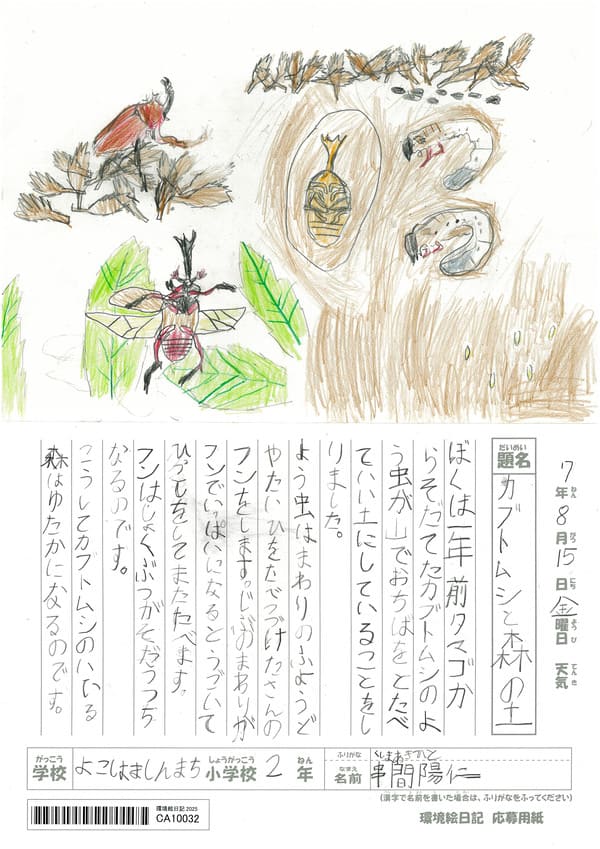 7年ねん8月がつ15日にち金曜日ようび 天気てんき
だいめい
題名 カブトムシと森の土
ぼくは一年前タマゴか
らそだてたカブトムシのよ
う虫が山でおちばをとたべ
ていい土にしていることをし
りました。
よう虫はまわりのふようど
やたいひをたべつづけたさんの
フンをします。じぶのまわりが
フンでいっぱいになるとうごいて
ひっこしをしてまたたべます。
フンはしょくぶつがそだつつち
なるのです。
こうしてカブトムシのいる
森はゆたかになるのです。
がっこう しょうがっこう ねん
学校 よこはましんまち 小学校 2 年
ふりがな
なまえ
名前 串間陽仁
(漢字で名前を書いた場合は、ふりがなをふってください)
環境絵日記 2025
CA10032
環境絵日記 応募用紙